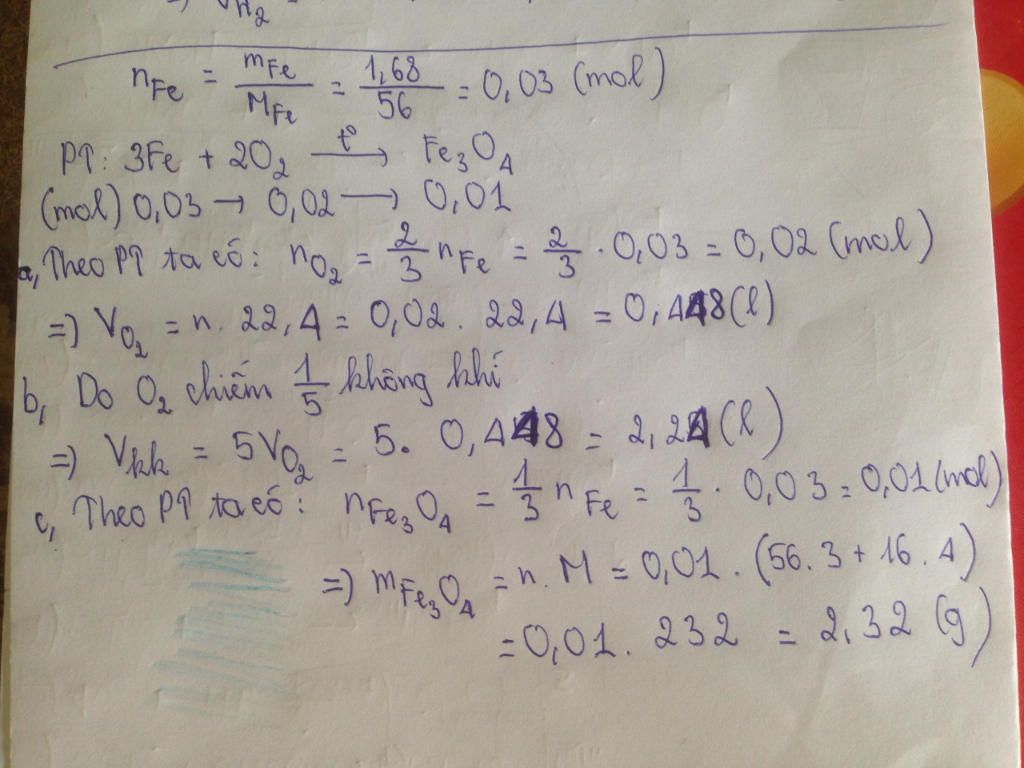 => V_H₂ =
n_Fe = m_Fe / M_Fe = 1,68 / 56 = 0,03 (mol)
PT: 3Fe + 2O₂ —t°→ Fe₃O₄
(mol) 0,03 → 0,02 → 0,01
a, Theo PT ta có: n_O₂ = 2/3 n_Fe = 2/3 · 0,03 = 0,02 (mol)
=> V_O₂ = n. 22,4 = 0,02. 22,4 = 0,448 (l)
b, Do O₂ chiếm 1/5 không khí
=> V_kk = 5V_O₂ = 5. 0,448 = 2,24 (l)
c, Theo PT ta có: n_Fe₃O₄ = 1/3 n_Fe = 1/3 · 0,03 = 0,01 (mol)
=> m_Fe₃O₄ = n. M = 0,01. (56. 3 + 16. 4)
= 0,01. 232 = 2,32 (g)